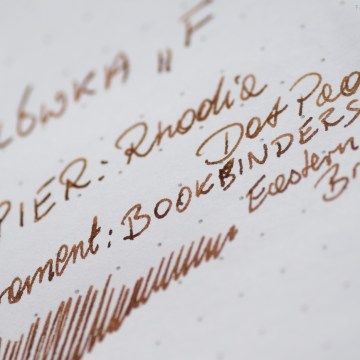 ŁÓWKA „F
PIER: Rhodia
Dot Pad
rament: BOOKBINDERS
Eastern
Br